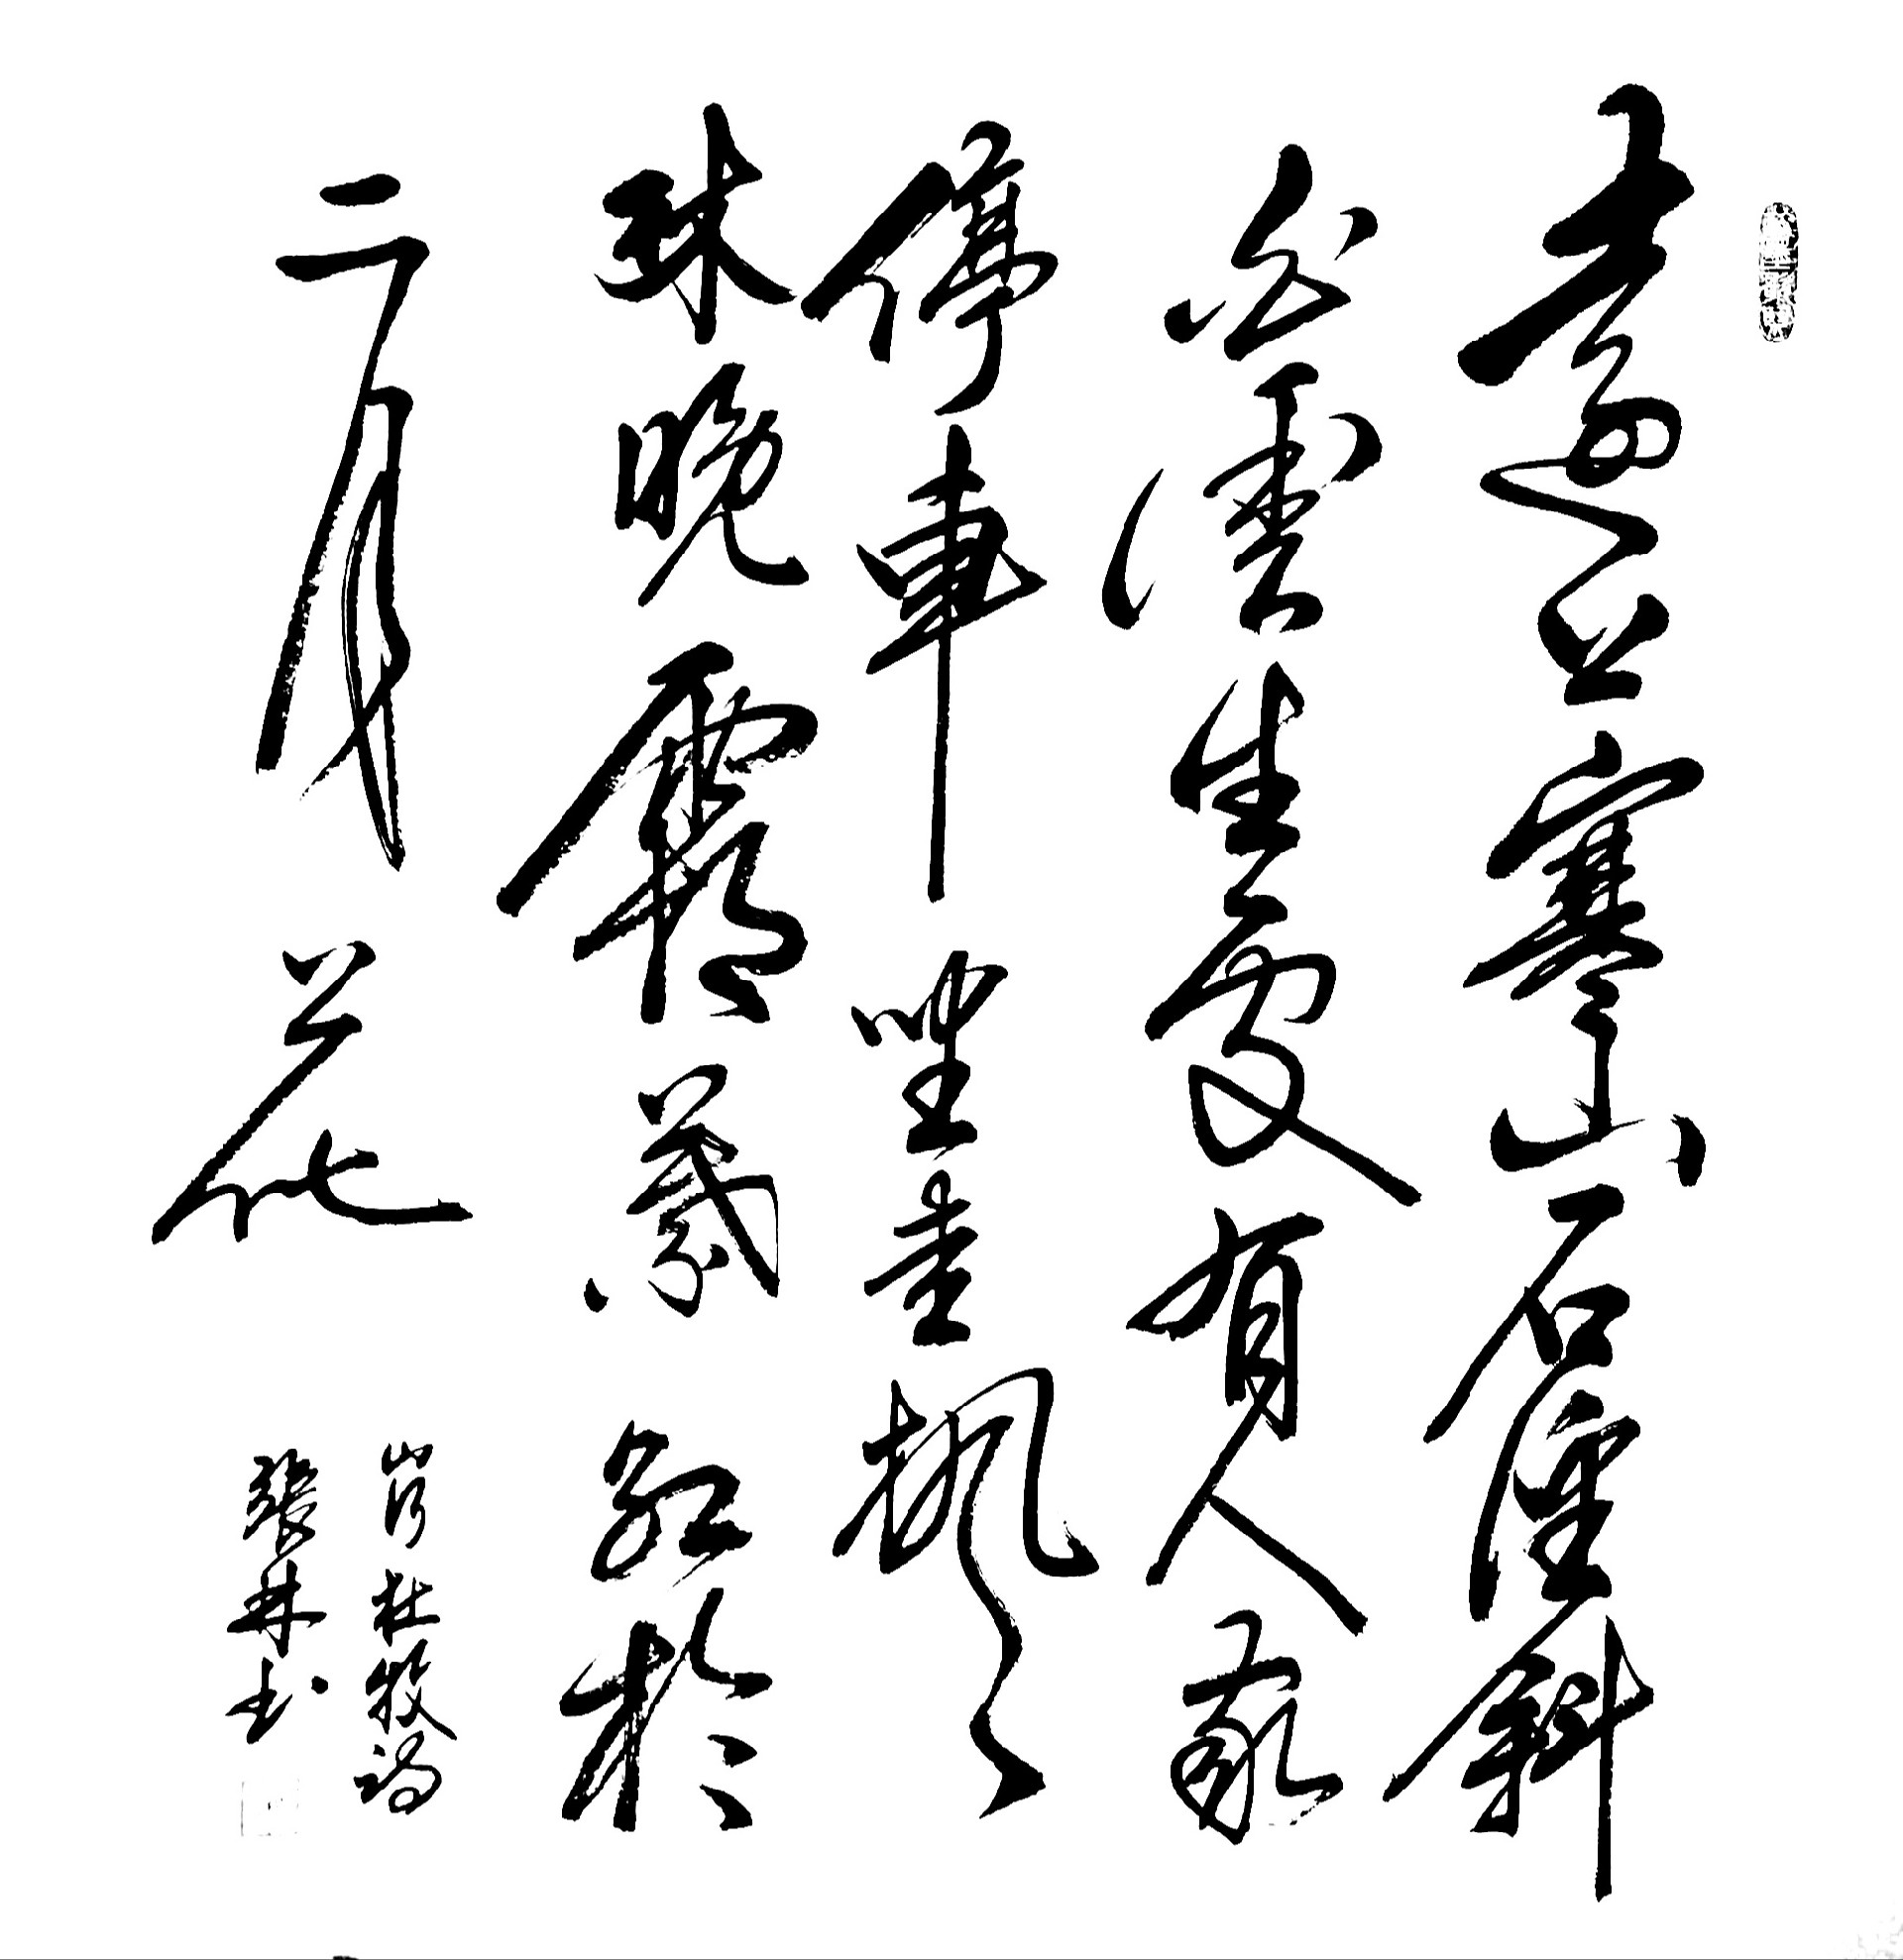 遠上寒山石徑斜
白雲生處有人家
停車坐愛楓
林晚霜葉紅於
二月花
杜牧詩
书